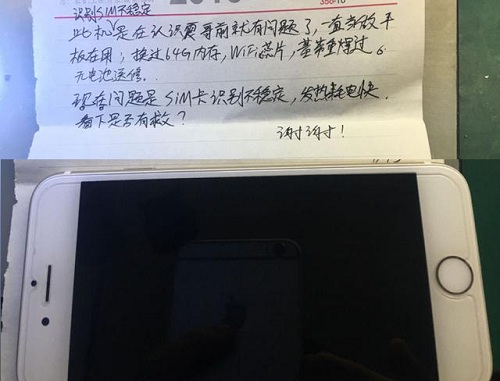 识别SIM不稳定
此机是在认识夏哥前就有问题了，一直当做平
板在用；换过64G内存，WiFi芯片，基带重焊过。
无电池返修。
现存问题是SIM卡识别不稳定，发热耗电快。
看下是否有救？
谢谢！